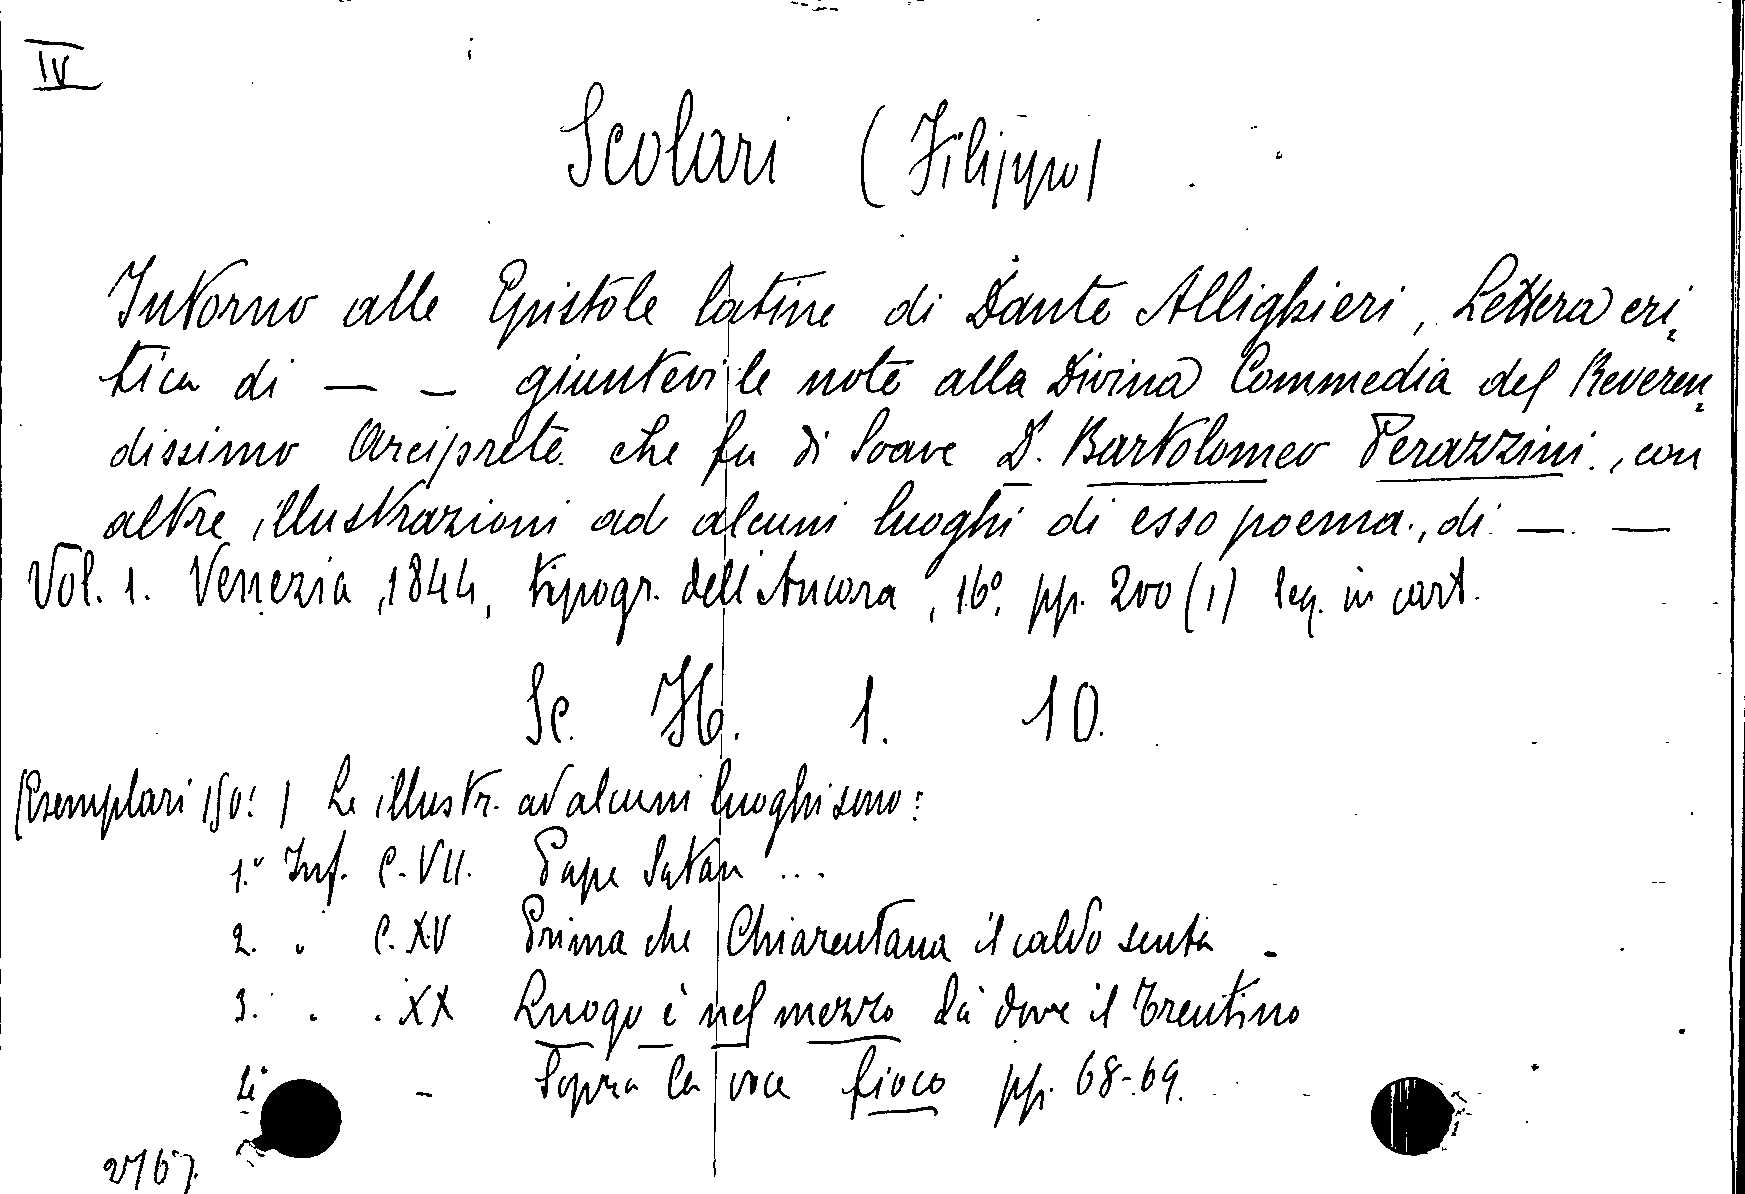 IV
Scolari (Filippo)
Intorno alle Epistole latine di Dante Allighieri, Lettera cri-
tica di — — giuntevi le note alla Divina Commedia del Reveren-
dissimo Arciprete che fu di Soave D. Bartolomeo Perazzini, con
altre illustrazioni ad alcuni luoghi di esso poema, di — —
Vol. 1. Venezia, 1844, tipogr. dell'Ancora, 16°, pp. 200 (1) leg. in cart.
Sc. H. 1. 10.
(Esemplari 150!) Le illustr. ad alcuni luoghi sono:
1.° Inf. C. VII. Pape Satan ...
2. " C. XV Prima che Chiarentana il caldo senta -
3. " " XX Luogo è nel mezzo là dove il Trentino
4 - Sopra la voce fioco pp. 68-69.
2767